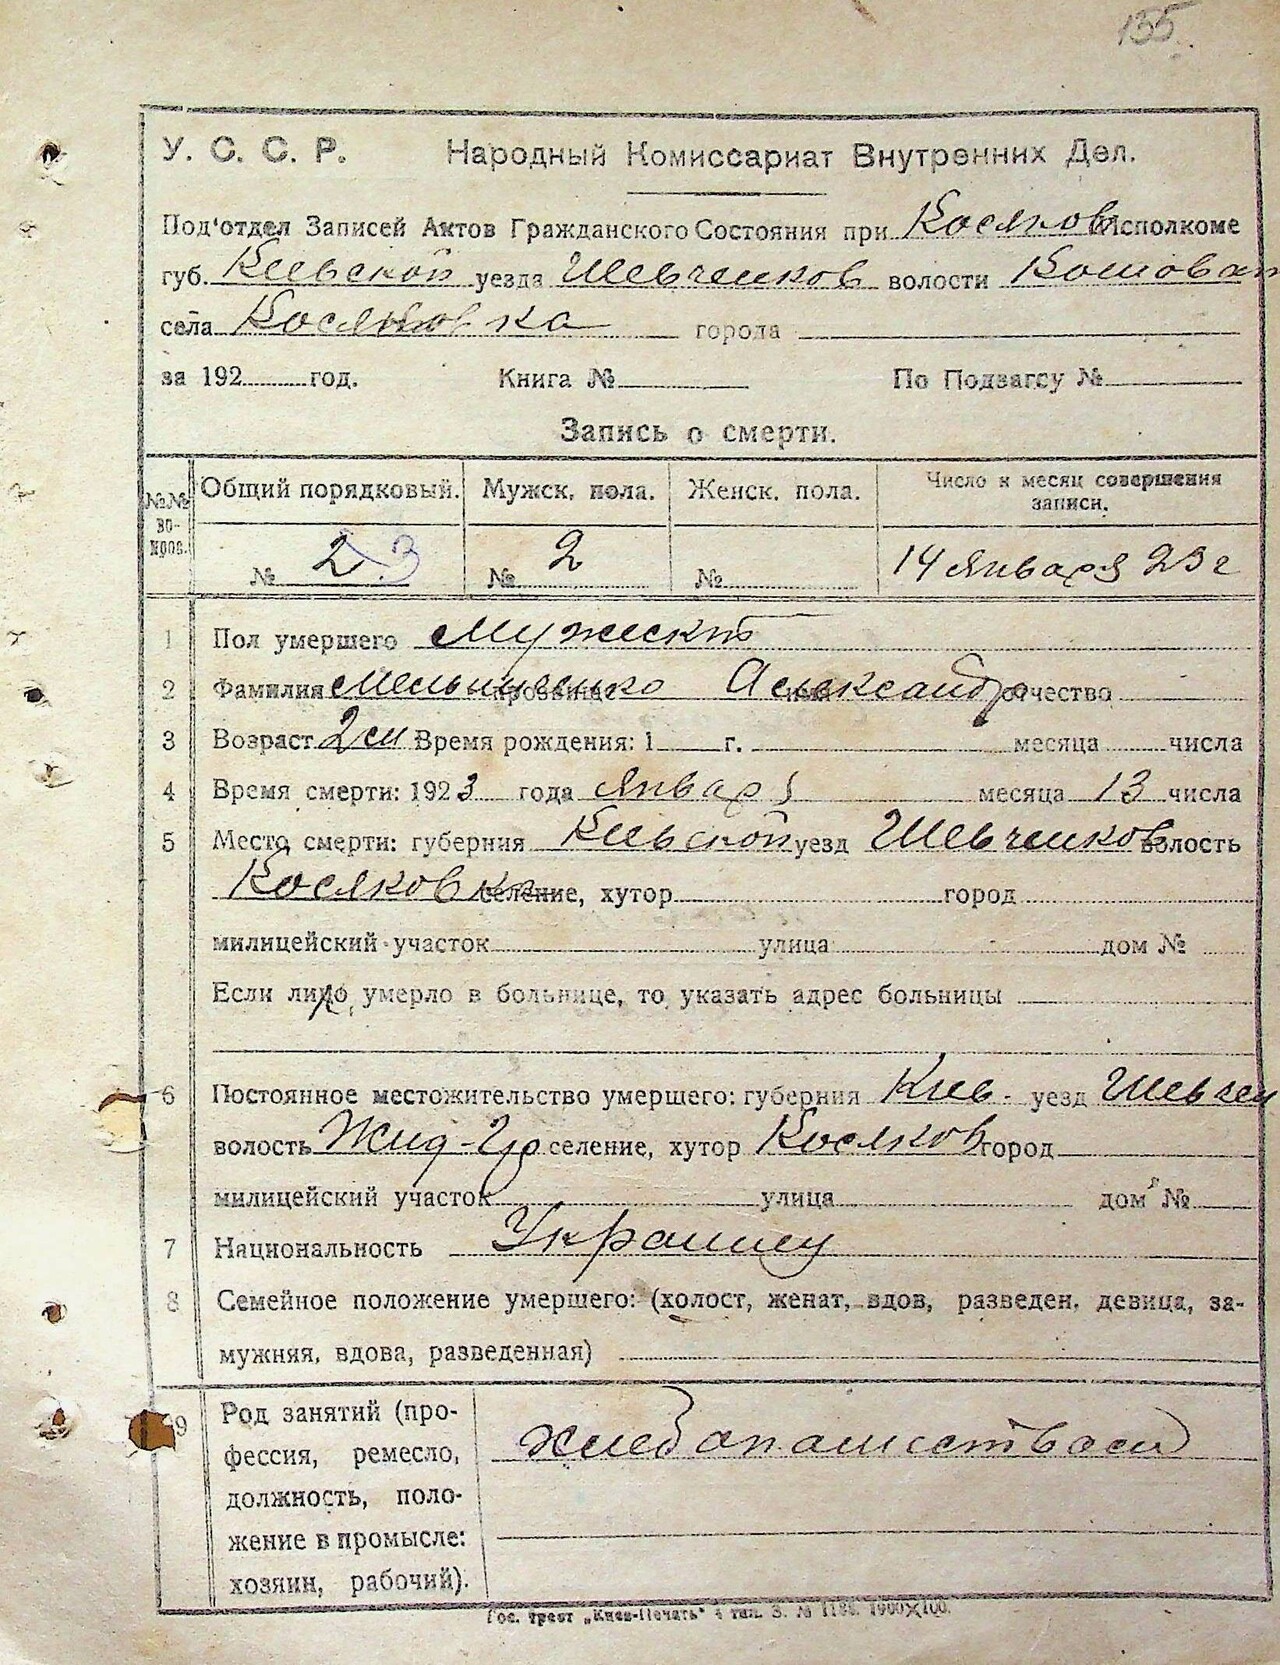 155
У. С. С. Р. Народный Комиссариат Внутренних Дел.
Под'отдел Записей Актов Гражданского Состояния при Косяков Исполкоме
губ. Киевской уезда Шевченков волости Кошован
села Косяковка города
за 192 год. Книга № По Подзагсу №
Запись о смерти.
№№ во- прос. Общий порядковый. Мужск. пола. Женск. пола. Число и месяц совершения записи.
№ 2 3 № 2 № 14 января 23 г
1 Пол умершего Мужеский
2 Фамилия Мельниченко прозвище Александр имя отчество
3 Возраст 2 м Время рождения: 1 г. месяца числа
4 Время смерти: 1923 года Января месяца 13 числа
5 Место смерти: губерния Киевской уезд Шевченков волость
Косяковка селение, хутор город
милицейский участок улица дом №
Если лицо умерло в больнице, то указать адрес больницы
6 Постоянное местожительство умершего: губерния Киев- уезд Шевчен
волость Жид-Гр селение, хутор Косяков город
милицейский участок улица дом №
7 Национальность Украинец
8 Семейное положение умершего: (холост, женат, вдов, разведен, девица, за-
мужняя, вдова, разведенная)
9 Род занятий (про-
фессия, ремесло,
должность, поло-
жение в промысле:
хозяин, рабочий).
Гос. трест „Киев-Печать" 4 тип. З. № 1900×100.